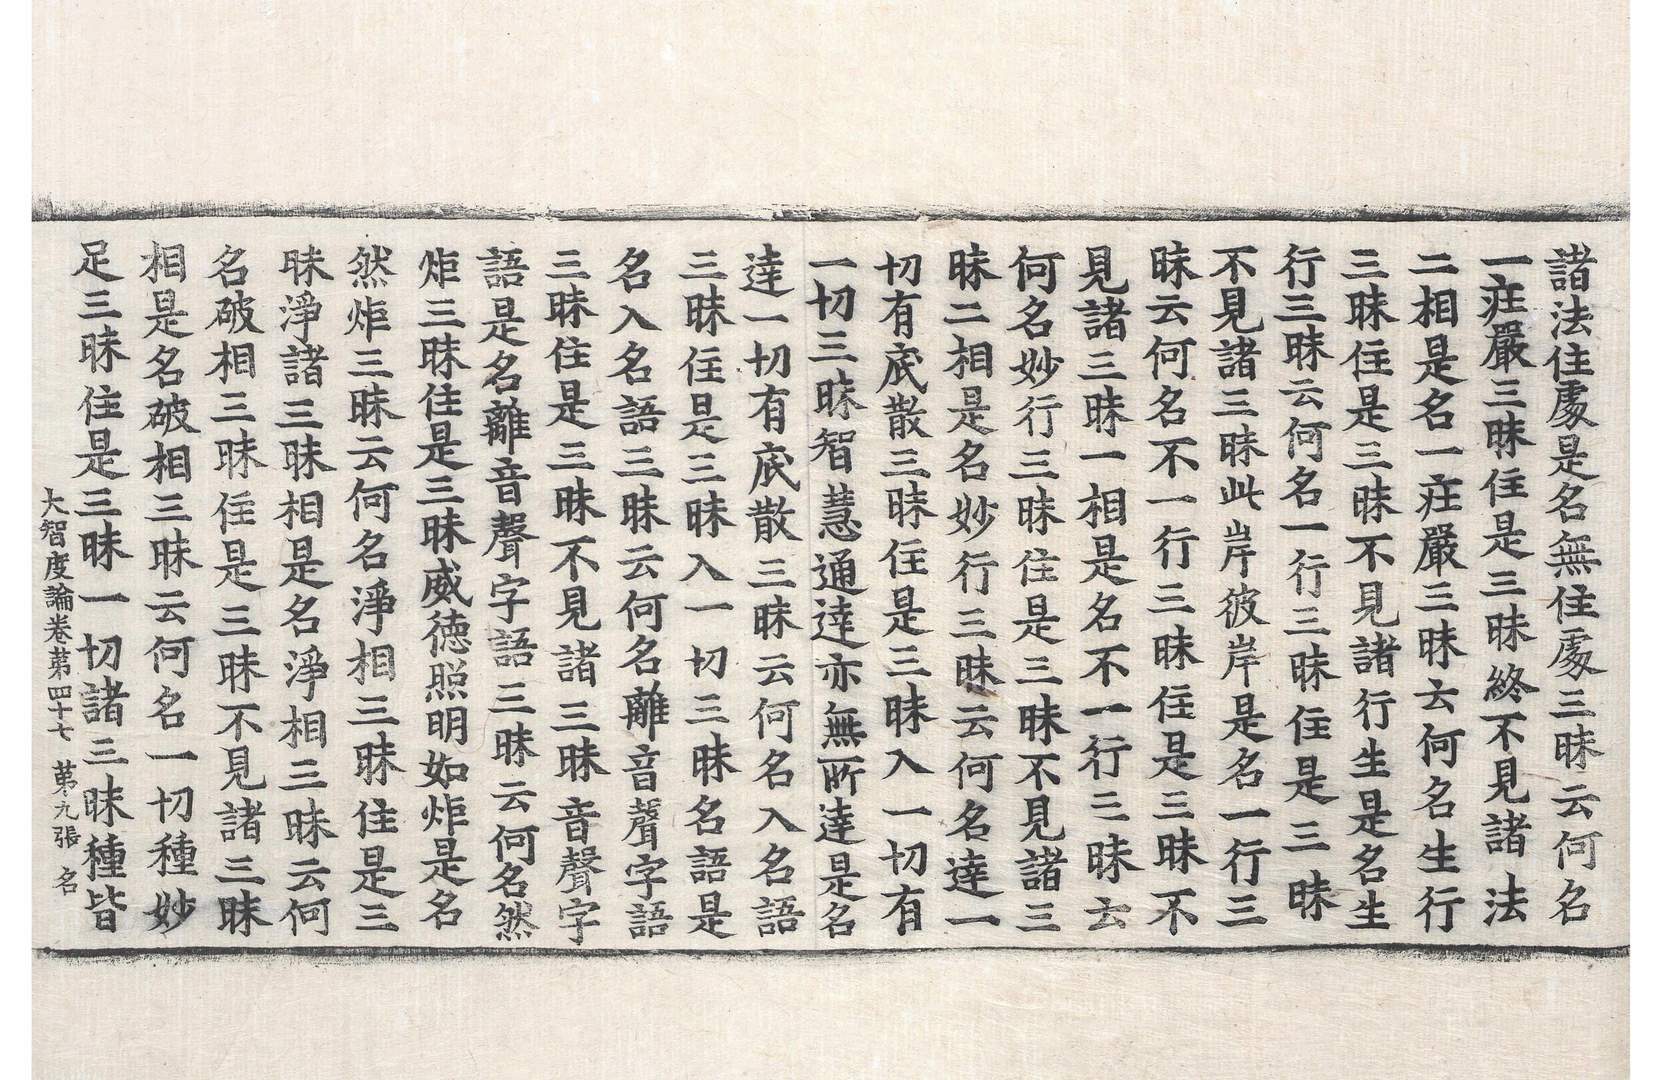 諸法住處是名無住處三昧云何名
一庄嚴三昧住是三昧終不見諸法
二相是名一庄嚴三昧云何名生行
三昧住是三昧不見諸行生是名生
行三昧云何名一行三昧住是三昧
不見諸三昧此岸彼岸是名一行三
昧云何名不一行三昧住是三昧不
見諸三昧一相是名不一行三昧云
何名妙行三昧住是三昧不見諸三
昧二相是名妙行三昧云何名達一
切有底散三昧住是三昧入一切有
一切三昧智慧通達亦無所達是名
達一切有底散三昧云何名入名語
三昧住是三昧入一切三昧名語是
名入名語三昧云何名離音聲字語
三昧住是三昧不見諸三昧音聲字
語是名離音聲字語三昧云何名然
炬三昧住是三昧威德照明如炬是名
然炬三昧云何名淨相三昧住是三
昧淨諸三昧相是名淨相三昧云何
名破相三昧住是三昧不見諸三昧
相是名破相三昧云何名一切種妙
足三昧住是三昧一切諸三昧種皆
大智度論卷第四十七 第九張 名